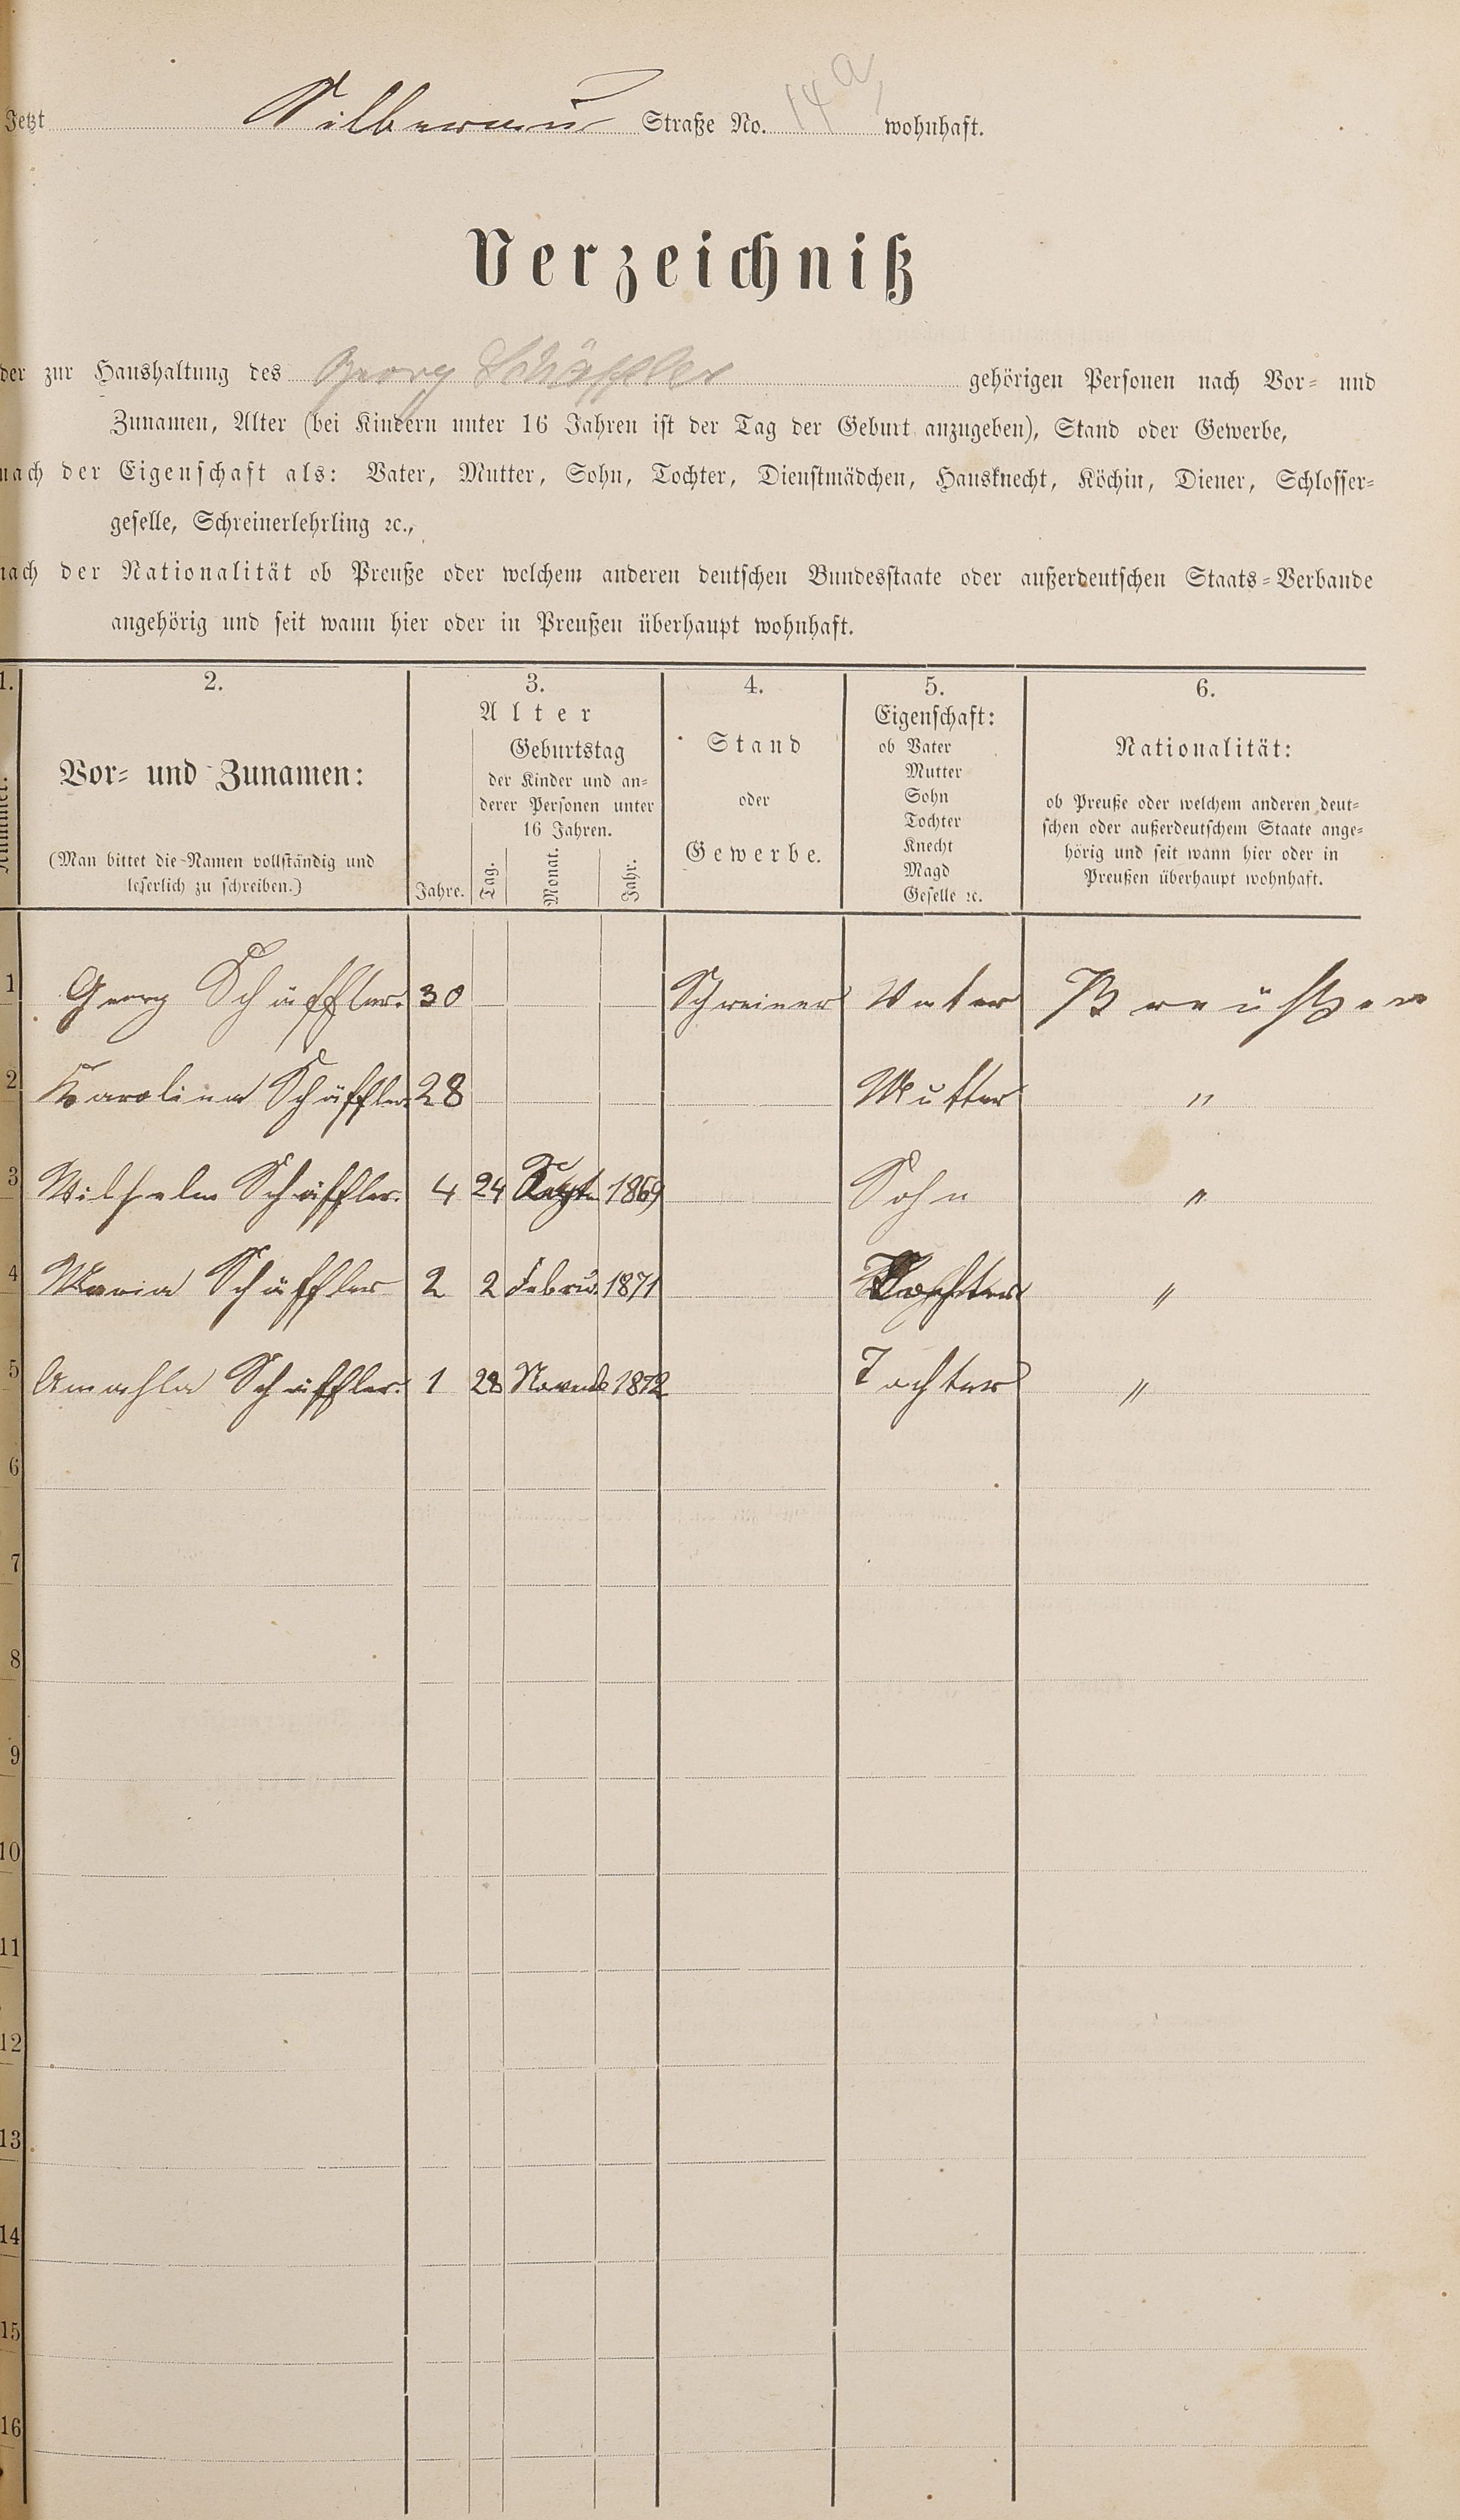 Jetzt Silberwui Straße No. 14a, wohnhaft.
Verzeichniß
der zur Haushaltung des Georg Schäffler gehörigen Personen nach Vor- und
Zunamen, Alter (bei Kindern unter 16 Jahren ist der Tag der Geburt anzugeben), Stand oder Gewerbe,
nach der Eigenschaft als: Vater, Mutter, Sohn, Tochter, Dienstmädchen, Hausknecht, Köchin, Diener, Schlosser-
geselle, Schreinerlehrling ꝛc.,
nach der Nationalität ob Preuße oder welchem anderen deutschen Bundesstaate oder außerdeutschen Staats-Verbande
angehörig und seit wann hier oder in Preußen überhaupt wohnhaft.
1. 2. 3. 4. 5. 6.
Nummer.
Vor- und Zunamen:
(Man bittet die Namen vollständig und
leserlich zu schreiben.)
Alter
Geburtstag
der Kinder und an-
derer Personen unter
16 Jahren.
Jahre. Tag. Monat. Jahr.
Stand
oder
Gewerbe.
Eigenschaft:
ob Vater
Mutter
Sohn
Tochter
Knecht
Magd
Geselle ꝛc.
Nationalität:
ob Preuße oder welchem anderen deut-
schen oder außerdeutschem Staate ange-
hörig und seit wann hier oder in
Preußen überhaupt wohnhaft.
1 Georg Schäffler. 30 Schreiner Vater Preußen
2 Karolina Schäffler 28 Mutter "
3 Wilhelm Schäffler. 4 24 Septe 1869 Sohn "
4 Maria Schäffler 2 2 Febru. 1871 Tochter "
5 Amahla Schäffler. 1 28 Novemb 1872 Tochter "
6
7
8
9
10
11
12
13
14
15
16